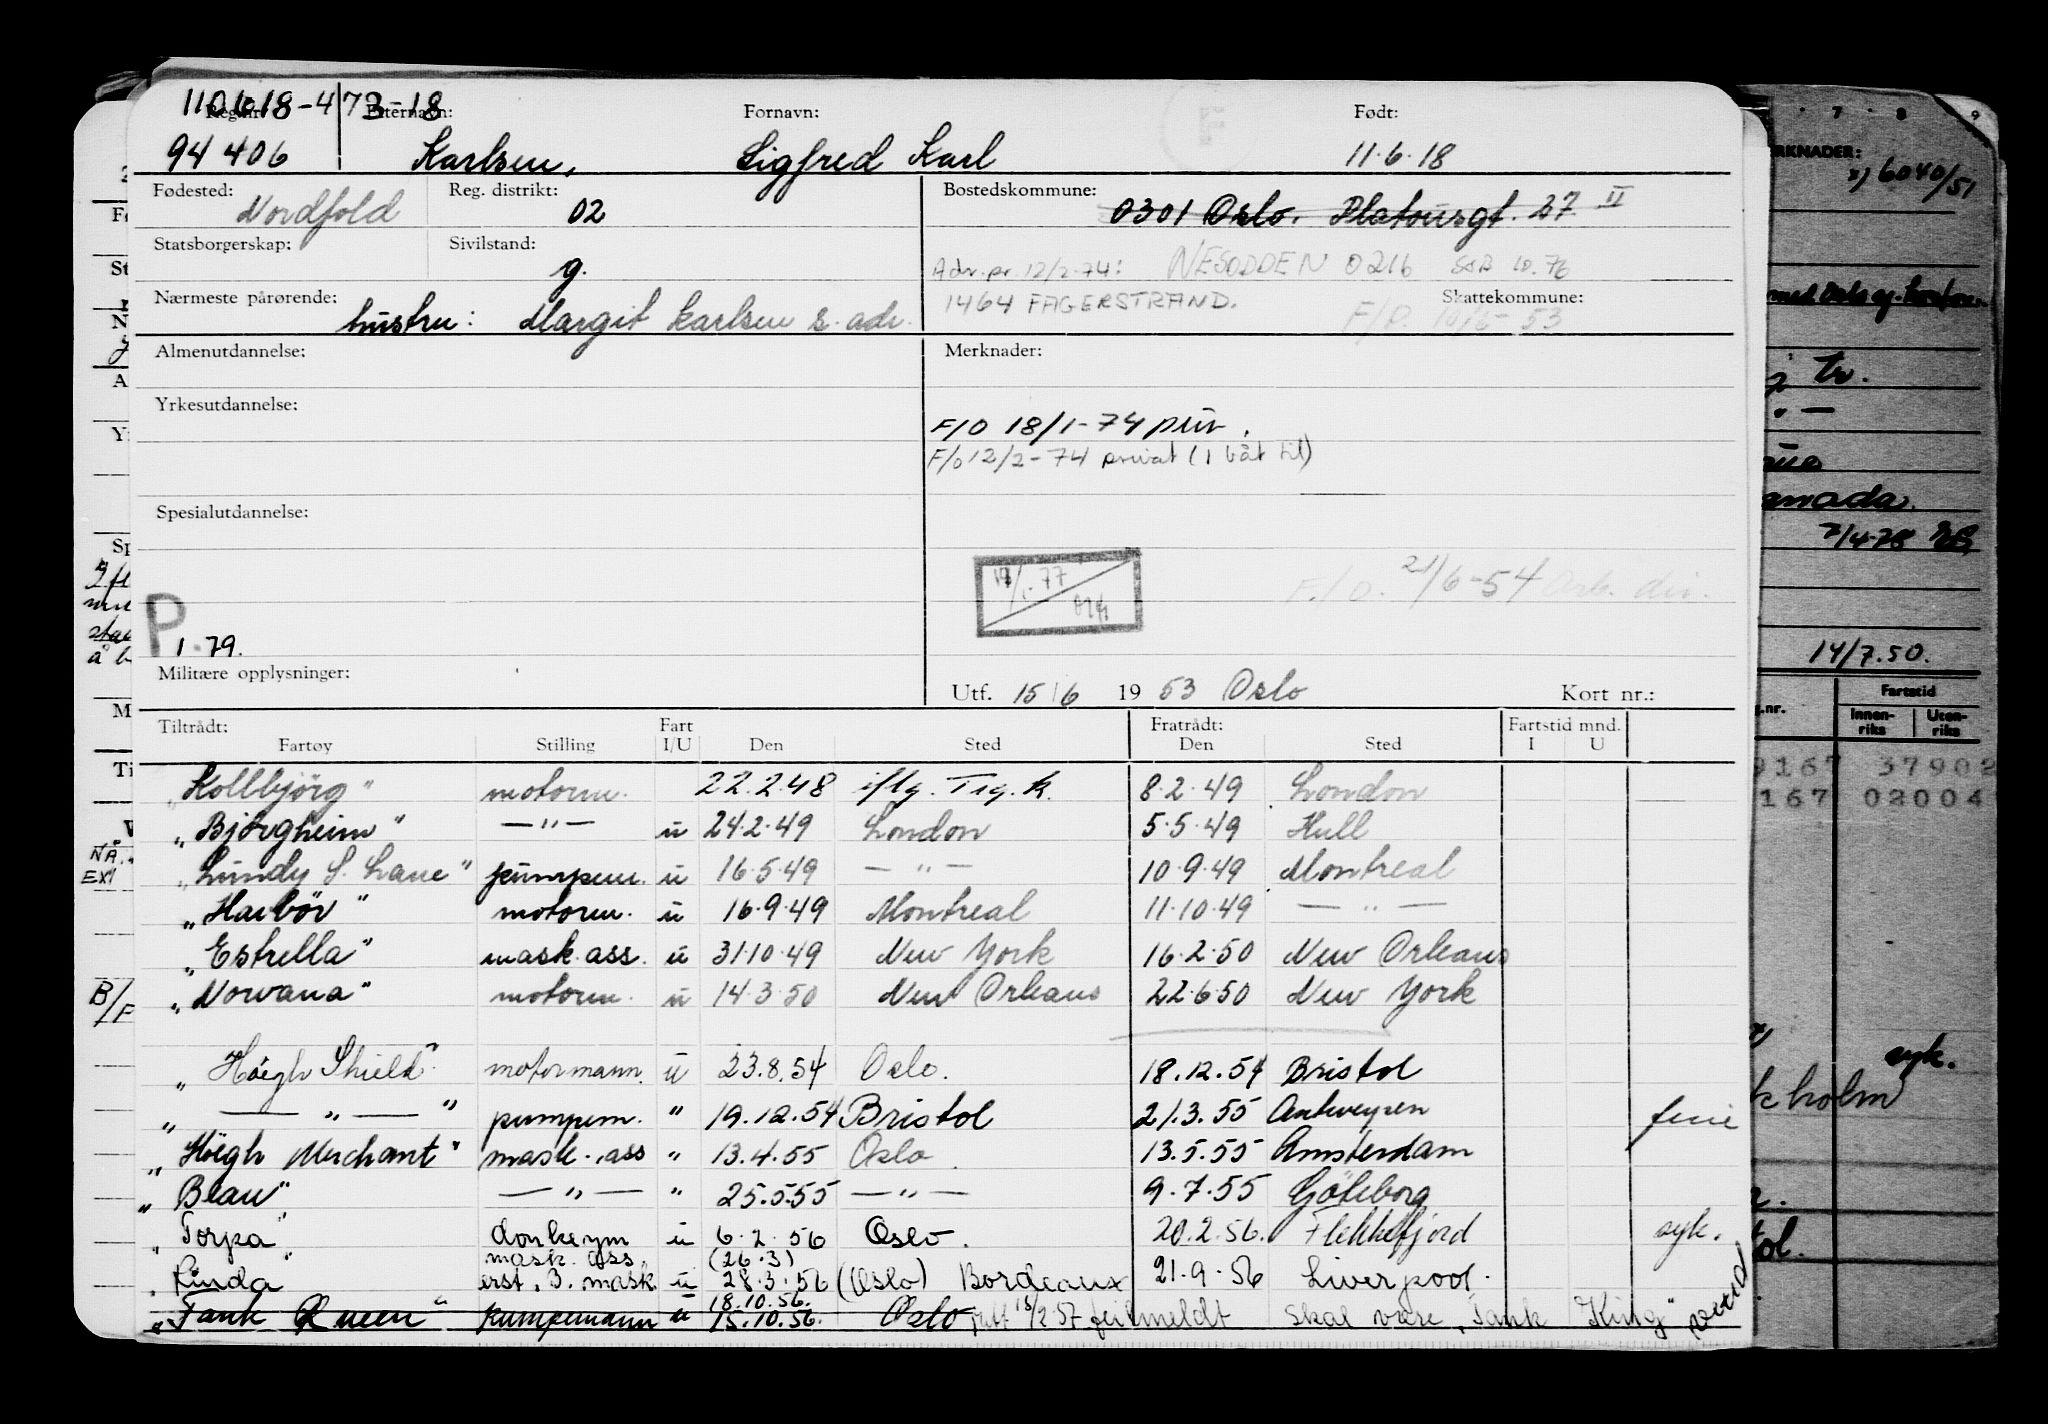 110618-473-18
Reg. nr.: Etternavn: Fornavn: F Født:
94 406 Karlsen, Sigfred Karl 11.6.18
Fødested: Nordfold Reg. distrikt: 02 Bostedskommune: 0301 Oslo. Platousgt. 27 II
Statsborgerskap: Sivilstand: g. Adr. pr. 12/2-74: NESODDEN 0216 10.76
Nærmeste pårørende: hustru: Margit Karlsen s. adr. 1464 FAGERSTRAND. Skattekommune:
F/O. 53
Almenutdannelse: Merknader:
Yrkesutdannelse:
F/O 18/1-74 priv.
F/o 12/2-74 privat (1 båt til)
Spesialutdannelse:
1-77
F./O. 21/6-54 Arb. dir.
P 1.79.
Militære opplysninger: Utf. 15/6 1953 Oslo Kort nr.:
Tiltrådt: Fart Fratrådt: Fartstid mnd.
Fartøy Stilling I/U Den Sted Den Sted I U
"Kollbjörg" motorm. 22.2.48 iflg. Trg.k. 8.2.49 London
"Björgheim" —"— u 24.2.49 London 5.5.49 Hull
"Lundy S. Lane" pumpem. u 16.5.49 —"— 10.9.49 Montreal
"Havbör" motorm. u 16.9.49 Montreal 11.10.49 —"—
"Estrella" mask.ass. u 31.10.49 New York 16.2.50 New Orleans
"Norvana" motorm. u 14.3.50 New Orleans 22.6.50 New York
"Höegh Shield" motormann. u 23.8.54 Oslo. 18.12.54 Bristol
"—"—" pumpem. " 19.12.54 Bristol 21.3.55 Antwerpen ferie
"Höegh Merchant" mask.ass " 13.4.55 Oslo. 13.5.55 Amsterdam
"Beau" —"— " 25.5.55 —"— 9.7.55 Göteborg
"Torpa" donkeym u 6.2.56 Oslo. 20.2.56. Flekkefjord syk.
mask. ass (26.3)
"Linda" erst. 3. mask u 28.3.56 (Oslo) Bordeaux 21.9.56 Liverpool.
18.10.56.
"Tank Queen" pumpemann u 15.10.56. Oslo 15/2 57 feilmeldt skal være "Tank King"
RKNADER:
x) 6040/51
tr.
anada.
7/4-78
14/7.50.
Fartstid
g.nr. Innen-riks Uten-riks
9167 37902
167 02004
syk.
kholm
tol.
B/F